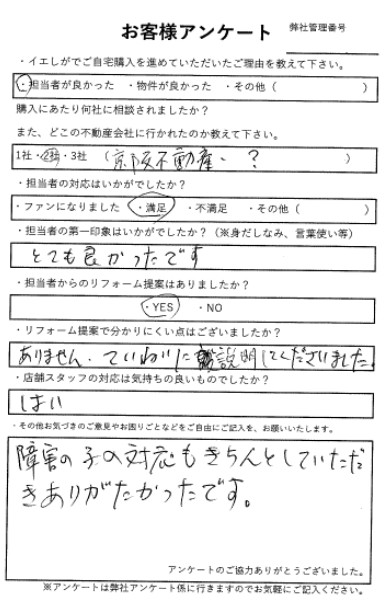 お客様アンケート
弊社管理番号
・イエしがでご自宅購入を進めていただいたご理由を教えて下さい。
・担当者が良かった ・物件が良かった ・その他 ( )
購入にあたり何社に相談されましたか?
また、どこの不動産会社に行かれたのか教えて下さい。
1社・2社・3社 (京阪不動産・? )
・担当者の対応はいかがでしたか?
・ファンになりました ・満足 ・不満足 ・その他 ( )
・担当者の第一印象はいかがでしたか?(※身だしなみ、言葉使い等)
とても良かったです
・担当者からのリフォーム提案はありましたか?
・YES ・NO
・リフォーム提案で分かりにくい点はございましたか?
ありません。ていねいに説明してくださいました。
・店舗スタッフの対応は気持ちの良いものでしたか?
はい
・その他お気づきのご意見やお困りごとなどをご自由にご記入を、お願いいたします。
障害の子の対応もきちんとしていただ
きありがたかったです。
アンケートのご協力ありがとうございました。
※アンケートは弊社アンケート係に行きますのでお気軽にご記入ください。